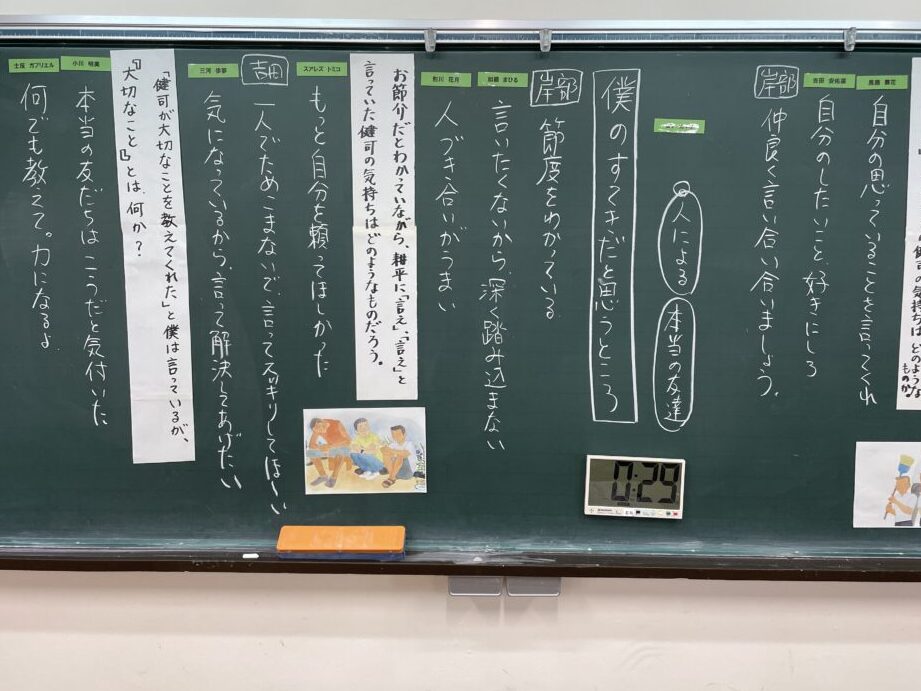 健司の気持ちは どのような
ものか。
自分の思っていることを言ってくれ
自分のしたいこと好きにしろ
岸部
仲良く言い合い合いましょう。
人による
本当の友達
僕のすてきだと思うところ
岸部
節度をわかっている
加藤 まひる
言いたくないから、深く踏み込まない
人づき合いがうまい
お節介だとわかっていながら、耕平に「言え」、「言え」と
言っていた健司の気持ちはどのようなものだろう。
スアレズ トミコ
もっと自分を頼ってほしかった
吉田
一人でためこまないで、言ってスッキリしてほしい
気になっているから、言って解決してあげたい
「健司が大切なことを教えてくれた」と僕は言っているが、
『大切なこと』とは、何か？
本当の友だちはこうだと気付いた
ガブリエル
何でも教えて。力になるよ。
0:29